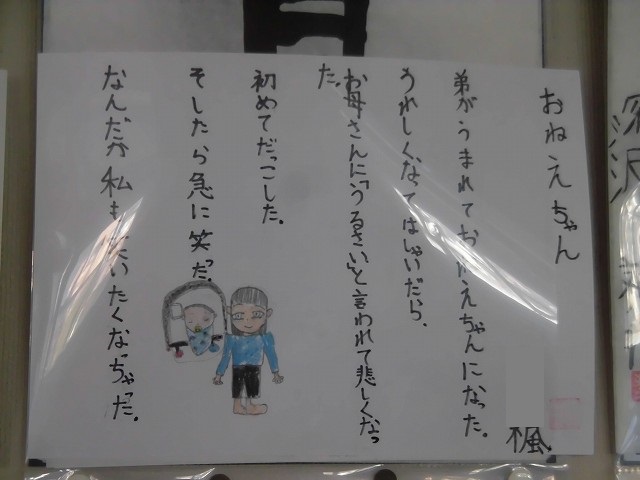 おねえちゃん
楓
弟がうまれておねえちゃんになった。
うれしくなってはしゃいだら、
お母さんに「うるさい」と言われて悲しくなっ
た。
初めてだっこした。
そしたら急に笑った。
なんだか私も笑いたくなっちゃった。
深沢